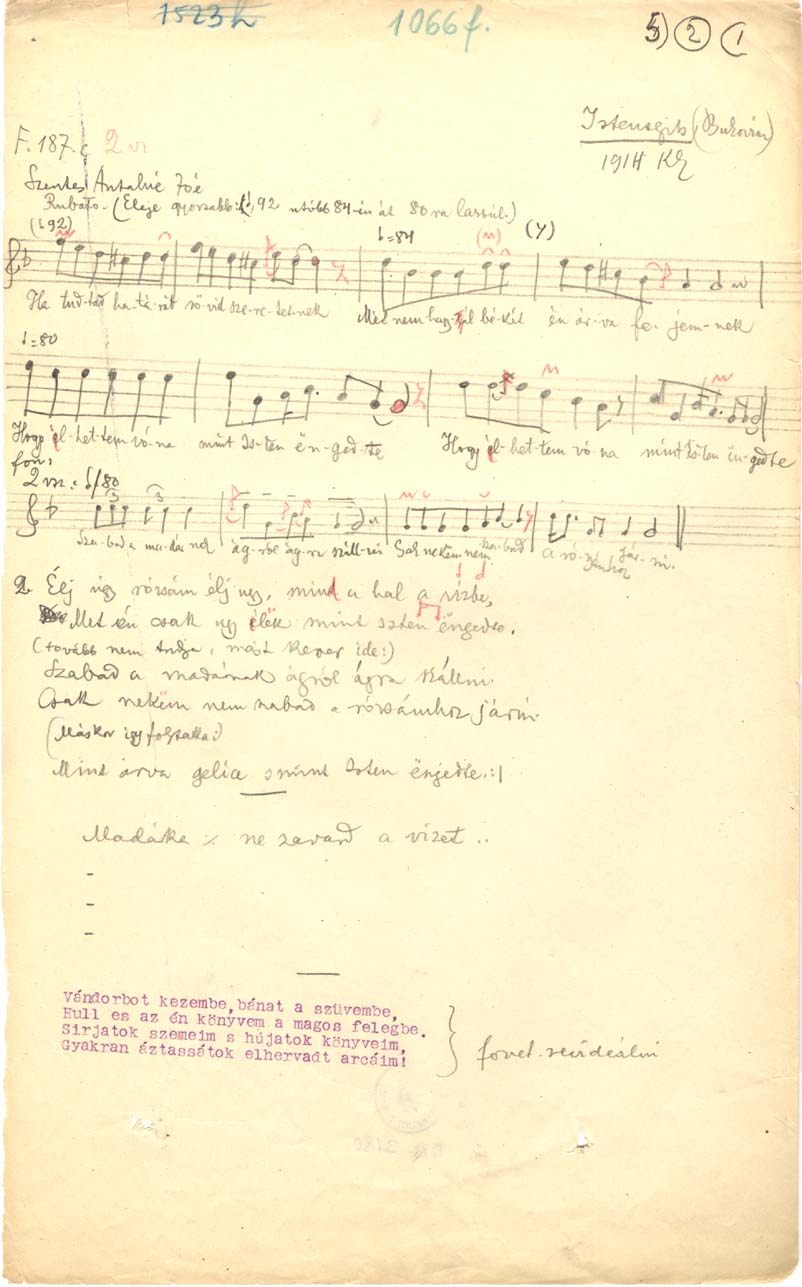 1523h
1066f.
5) 2 1
Istensegits (Bukovina)
1914 KZ
F. 187. c 2 vr
Szentes Antalné
Rubato. (Eleje gyorsabb: 92 utóbb 84-en át 80 ra lassúl.)
(92) =84
Ha tud-tad ha-tá-rát rö-vid sze-re-tet-nek Mér nem hagy-tál bé-két én ár-va fe-jem-nek
=80
Hogy él-het-tem vó-na mint Is-ten en-ged-te Hogy él-het-tem vó-na mint Is-ten en-gedte
fon:
2 vsz. 80
Sza-bad a ma-dár-nak ág-ról ág-ra száll-ni Sak nekem nem sza-bad a ró-sámhoz jár-ni.
2. Élj úgy rózsám élj ugy, mind a hal a vizbe,
Met én csak ugy élek mint Isten engedte.
(tovább nem tudja, mást kever ide:)
Szabad a madárnak ágról ágra szállni
Csak nekëm nem szabad a rózsámhoz járni.
(Máskor igy folytatta:)
Mint árva gelice s mint Isten engedte. :|
Madárka ne zavard a vizet ..
-
-
-
Vándorbot kezembe, bánat a szüvembe,
Hull es az én könyvem a magos felegbe.
Sirjatok szemeim s hújatok könyveim,
Gyakran áztassátok elhervadt arcáim!